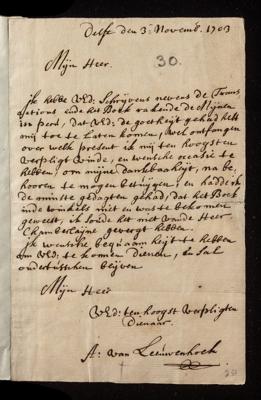 Delft den 3e Novemb. 1703
Mijn Heer.
30.
Ik hebbe VEd: Schrijvens nevens de Trans
actions ende het Boek rakende de Mijnen
in perd, dat VEd: de goetheijt gehad heeft
mij toe te laten komen, wel ontfangen
over welk present ik mij ten hoogsten
verpligt vinde, en wensche occasie te
hebben, om mijne dankbaarheijt, na be,
hooren te mogen betuijgen, en hadde ik
de minste gedagten gehad, dat het Boek
inde winkels niet en was te bekomen
geweest, ik soude het niet vande Heer
Chamberlaijne gevergt hebben.
Ik wenschte bequaamheijt te hebben
om VEd: te konnen dienen, en sal
ondertusschen blijven.
Mijn Heer
VEd: ten hoogst verpligten
Dienaar.
A: van Leeuwenhoek